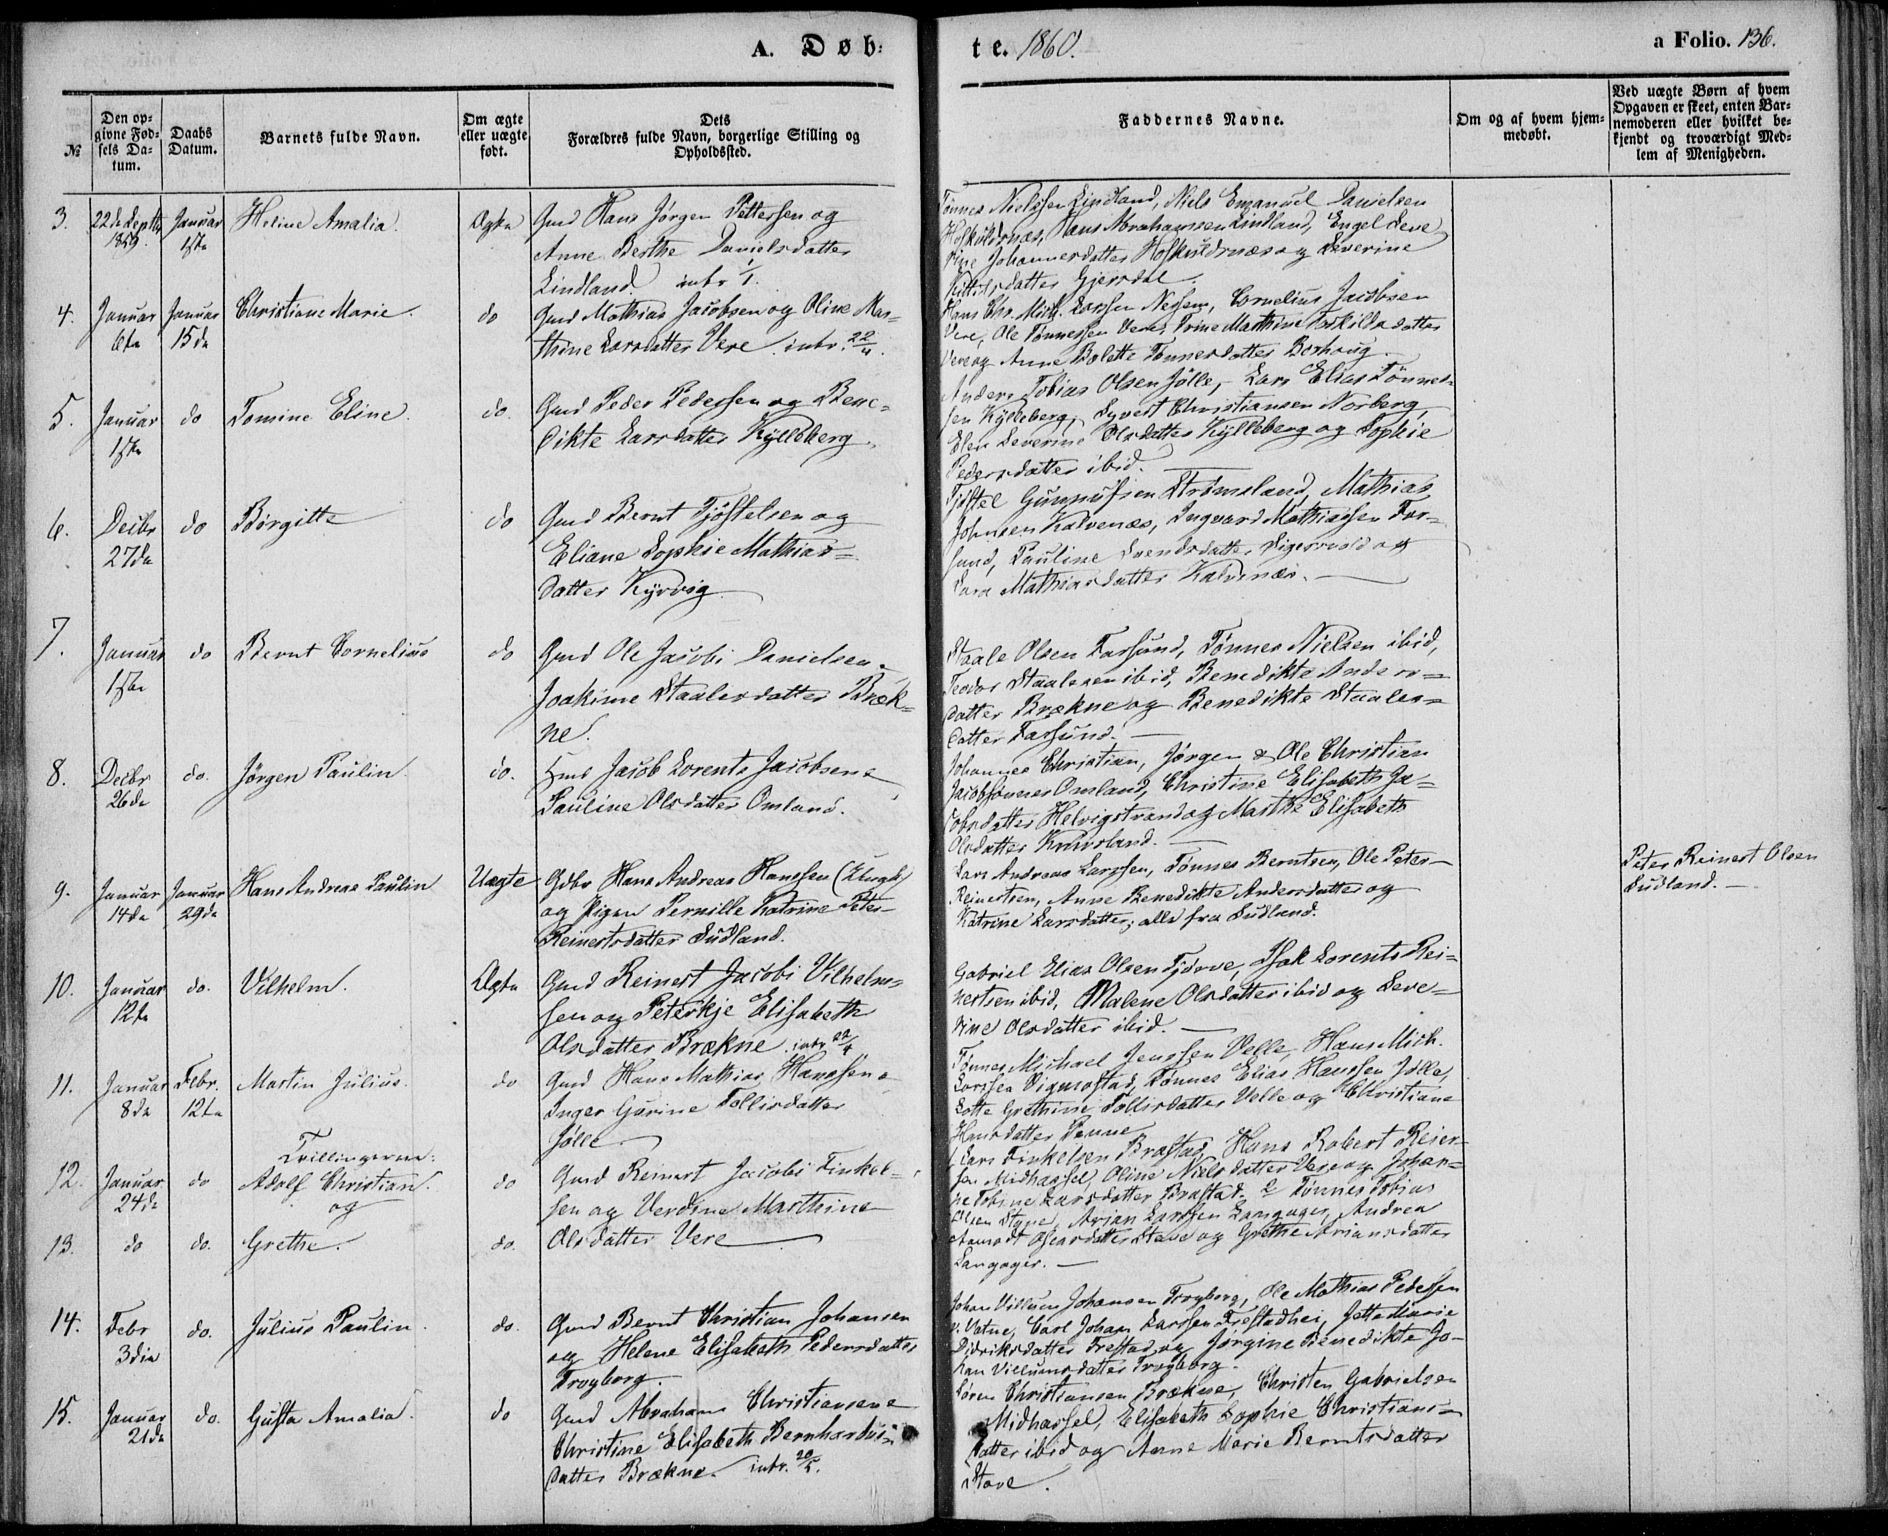 A. Døb-
te. 1860.
a Folio. 136.
№
Den op-
givne Fød-
sels Da-
tum.
Daabs
Datum.
Barnets fulde Navn.
Om ægte
eller uægte
født.
Dets
Forældres fulde Navn, borgerlige Stilling og
Opholdssted.
Faddernes Navne.
Om og af hvem hjem-
medøbt.
Ved uægte Børn af hvem
Opgaven er skeet, enten Bar-
nemoderen eller hvilket be-
kjendt og troværdigt Med-
lem af Menigheden.
3. 22de Septbr 1859. Januar 1ste Heline Amalia. Ægte
Gmd Hans Jørgen Pettersen og
Anne Berthe Danielsdatter
Lindland intr 1/1.
Tønnes Nielssen Lindland, Niels Emanuel Danielsen
Hoskuldnæs, Hans Abrahamsen Lindland, Engel Seve-
rine Johannesdatter Hoskuldnæs og Severine
datter Gjersdal.
4. Januar 6te Januar 15de Christiane Marie. do
Gmd Mathias Jacobsen og Oline Mar-
thine Larsdatter Vere. intr. 22/4.
Hans Chr. Mich. Larssen Nesheim, Cornelius Jacobsen
Vere, Ole Tønnessen Vere, Trine Marthine Torkildsdatter
Vere og Anne Bolette Tønnesdatter Borhaug.
5. Januar 1ste do Tomine Eline. do.
Gmd Peder Pedersen og Bene-
dikte Larsdatter Kylleberg.
Anders Tobias Olsen Jølle, Lars Elias Tønnes-
sen Kylleberg, Syvert Christiansen Norberg,
Elen Severine Olsdatter Kylleberg og Sophie
Pedersdatter ibid.
6. Decbr 27de do Børgitte do
Gmd Bernt Tjøstelsen og
Eliane Sophie Mathias-
datter Kjørvig
Tjøstel Gunnufsen Strømsland, Mathias
Johnsen Kalvenæs, Ingvard Mathiassen Far-
sund, Pauline Svendsdatter Sigersvold og
Sara Mathiasdatter Kalvenæs.
7. Januar 1ste do Bernt Cornelius do
Gmd Ole Jacobi Danielsen
Joakime Staalesdatter Bræk-
ne.
Staale Olsen Farsund, Tønnes Nielsen ibid,
Teodor Staalesen ibid, Benedikte Anders-
datter Brækne og Benedikte Staales-
datter Farsund.
8. Decbr 26de do. Jørgen Paulin. do.
Jacob Lorents Jacobsen
Pauline Olsdatter Omland.
Johannes Christian, Jørgen & Ole Christian
Jacobsønner Omland, Christine Elisabeth Ja-
cobsdatter Helvigstrand og Marthe Elisabeth
Olsdatter
9. Januar 14de Januar 29de Hans Andreas Paulin Uægte
Gdbr Hans Andreas Hanssen (Ungk)
og Pigen Pernille Katrine Peter
Reinertsdatter Sudland.
Lars Andreas Larssen, Tønnes Berntsen, Ole Peter
Reinertsen, Anne Benedikte Andersdatter og
Katrine Larsdatter, alle fra Sudland.
Peter Reinert Olsen
Sudland.
10. Januar 12te do. Vilhelm. Ægte
Gmd Reinert Jacobi Vilhelm-
sen og Peterkje Elisabeth
Olsdatter Brækne. intr 22/4
Gabriel Elias Olsen Tjørve, Isak Lorents Rei-
nertsen ibid, Malene Olsdatter ibid og Seve-
rine Olsdatter ibid.
11. Januar 8de Febr. 12te Martin Julius. do
Gmd Hans Mathias Hanssen
Inger Gurine Tollisdatter
Jølle
Tønnes Michael Jenssen Velle, Hans Mich.
Larssen Vigmostad, Tønnes Elias Hanssen Jølle,
Lotte Grethine Tollisdatter Velle og Christiane
Hansdatter Penne
Tvillingerne:
12. Januar 24de do Adolf Christian. do
og
13. do do. Grethe. do.
Gmd Reinert Jacobi Finkel-
sen og Verdine Marthine
Olsdatter Vere
Lars Finkelsen Brastad, Hans Robert Reier-
sen Midhassel, Oline Nielsdatter Vere og Johan-
ne Tobine Larsdatter Brastad. Tønnes Tobias
Olsen Stave, Arian Larssen Langager, Andrea
datter Stave og Grethe Ariansdatter
Langager.
14. Febr 3die do. Julius Paulin. do.
Gmd Bernt Christian Johansen
og Helene Elisabeth Pedersdatter
Troyborg.
Johan Villum Johansen Troyborg, Ole Mathias Pedersen
Vatne, Carl Johan Larssen Frestadhei, Jotte Marie
Didriksdatter Frestad og Jørgine Benedikte Jo-
han Villumsdatter Troyborg.
15. Januar 21de do. Gusta Amalia. do
Gmd Abraham Christiansen
Christine Elisabeth Bernhardus-
datter Brækne. intr. 20/5.
Søren Christiansen Brækne, Christen Gabrielsen
Midhassel, Elisabeth Sophie Christians-
datter ibid og Anne Marie Berntsdatter
Stave.